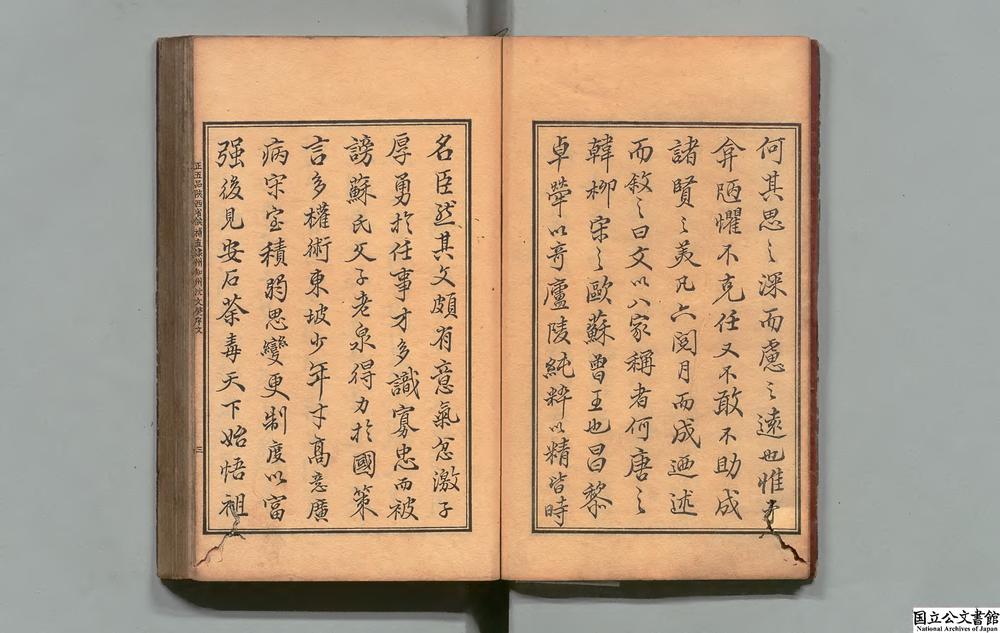 何其思之深而慮之遠也惟
弇陋懼不克任又不敢不助成
諸賢之美凡六閱月而成迺述
而敘之曰文以八家稱者何唐之
韓柳宋之歐蘇曾王也昌黎
卓犖以奇廬陵純粹以精皆時
名臣然其文頗有意氣忿激子
厚勇於任事才多識寡忠而被
謗蘇氏父子老泉得力於國策
言多權術東坡少年才高意廣
病宋室積弱思變更制度以富
强後見安石荼毒天下始悟祖
正五品陝西省候補直隸州知州沈文 序文
三
国立公文書館
National Archives of Japan